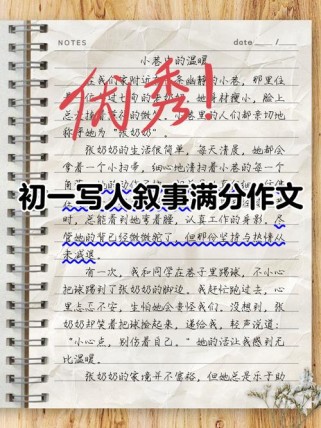 NOTES
date
小巷中的温暖
在我们家附近 条幽静的小巷，那里住
过七旬的 她身材瘦小，脸上
的微 小巷里的人们都亲切地
称呼她为"张奶奶"。
优秀!
张奶奶的生活很简单，每天清晨，她都会
拿着一个小扫帚，细心地清扫着小巷的每一个
初一写人叙事满分作文
时，总能看到她弯着腰，认真工作的身影，尽
管她的背已经微微驼了，但那份坚持与热情从
未减退。
有一次，我和同学在巷子里踢球，不小心
把球踢到了张奶奶的脚边。我赶忙跑过去，心
里忐忑不安，生怕她会责怪我们。没想到，张
奶奶却笑着把球捡起来，递给我，轻声说道：
"小心点，别伤着自己。"她的话让我感到无
比温暖。
张奶奶的家境并不富裕，但她总是乐于助